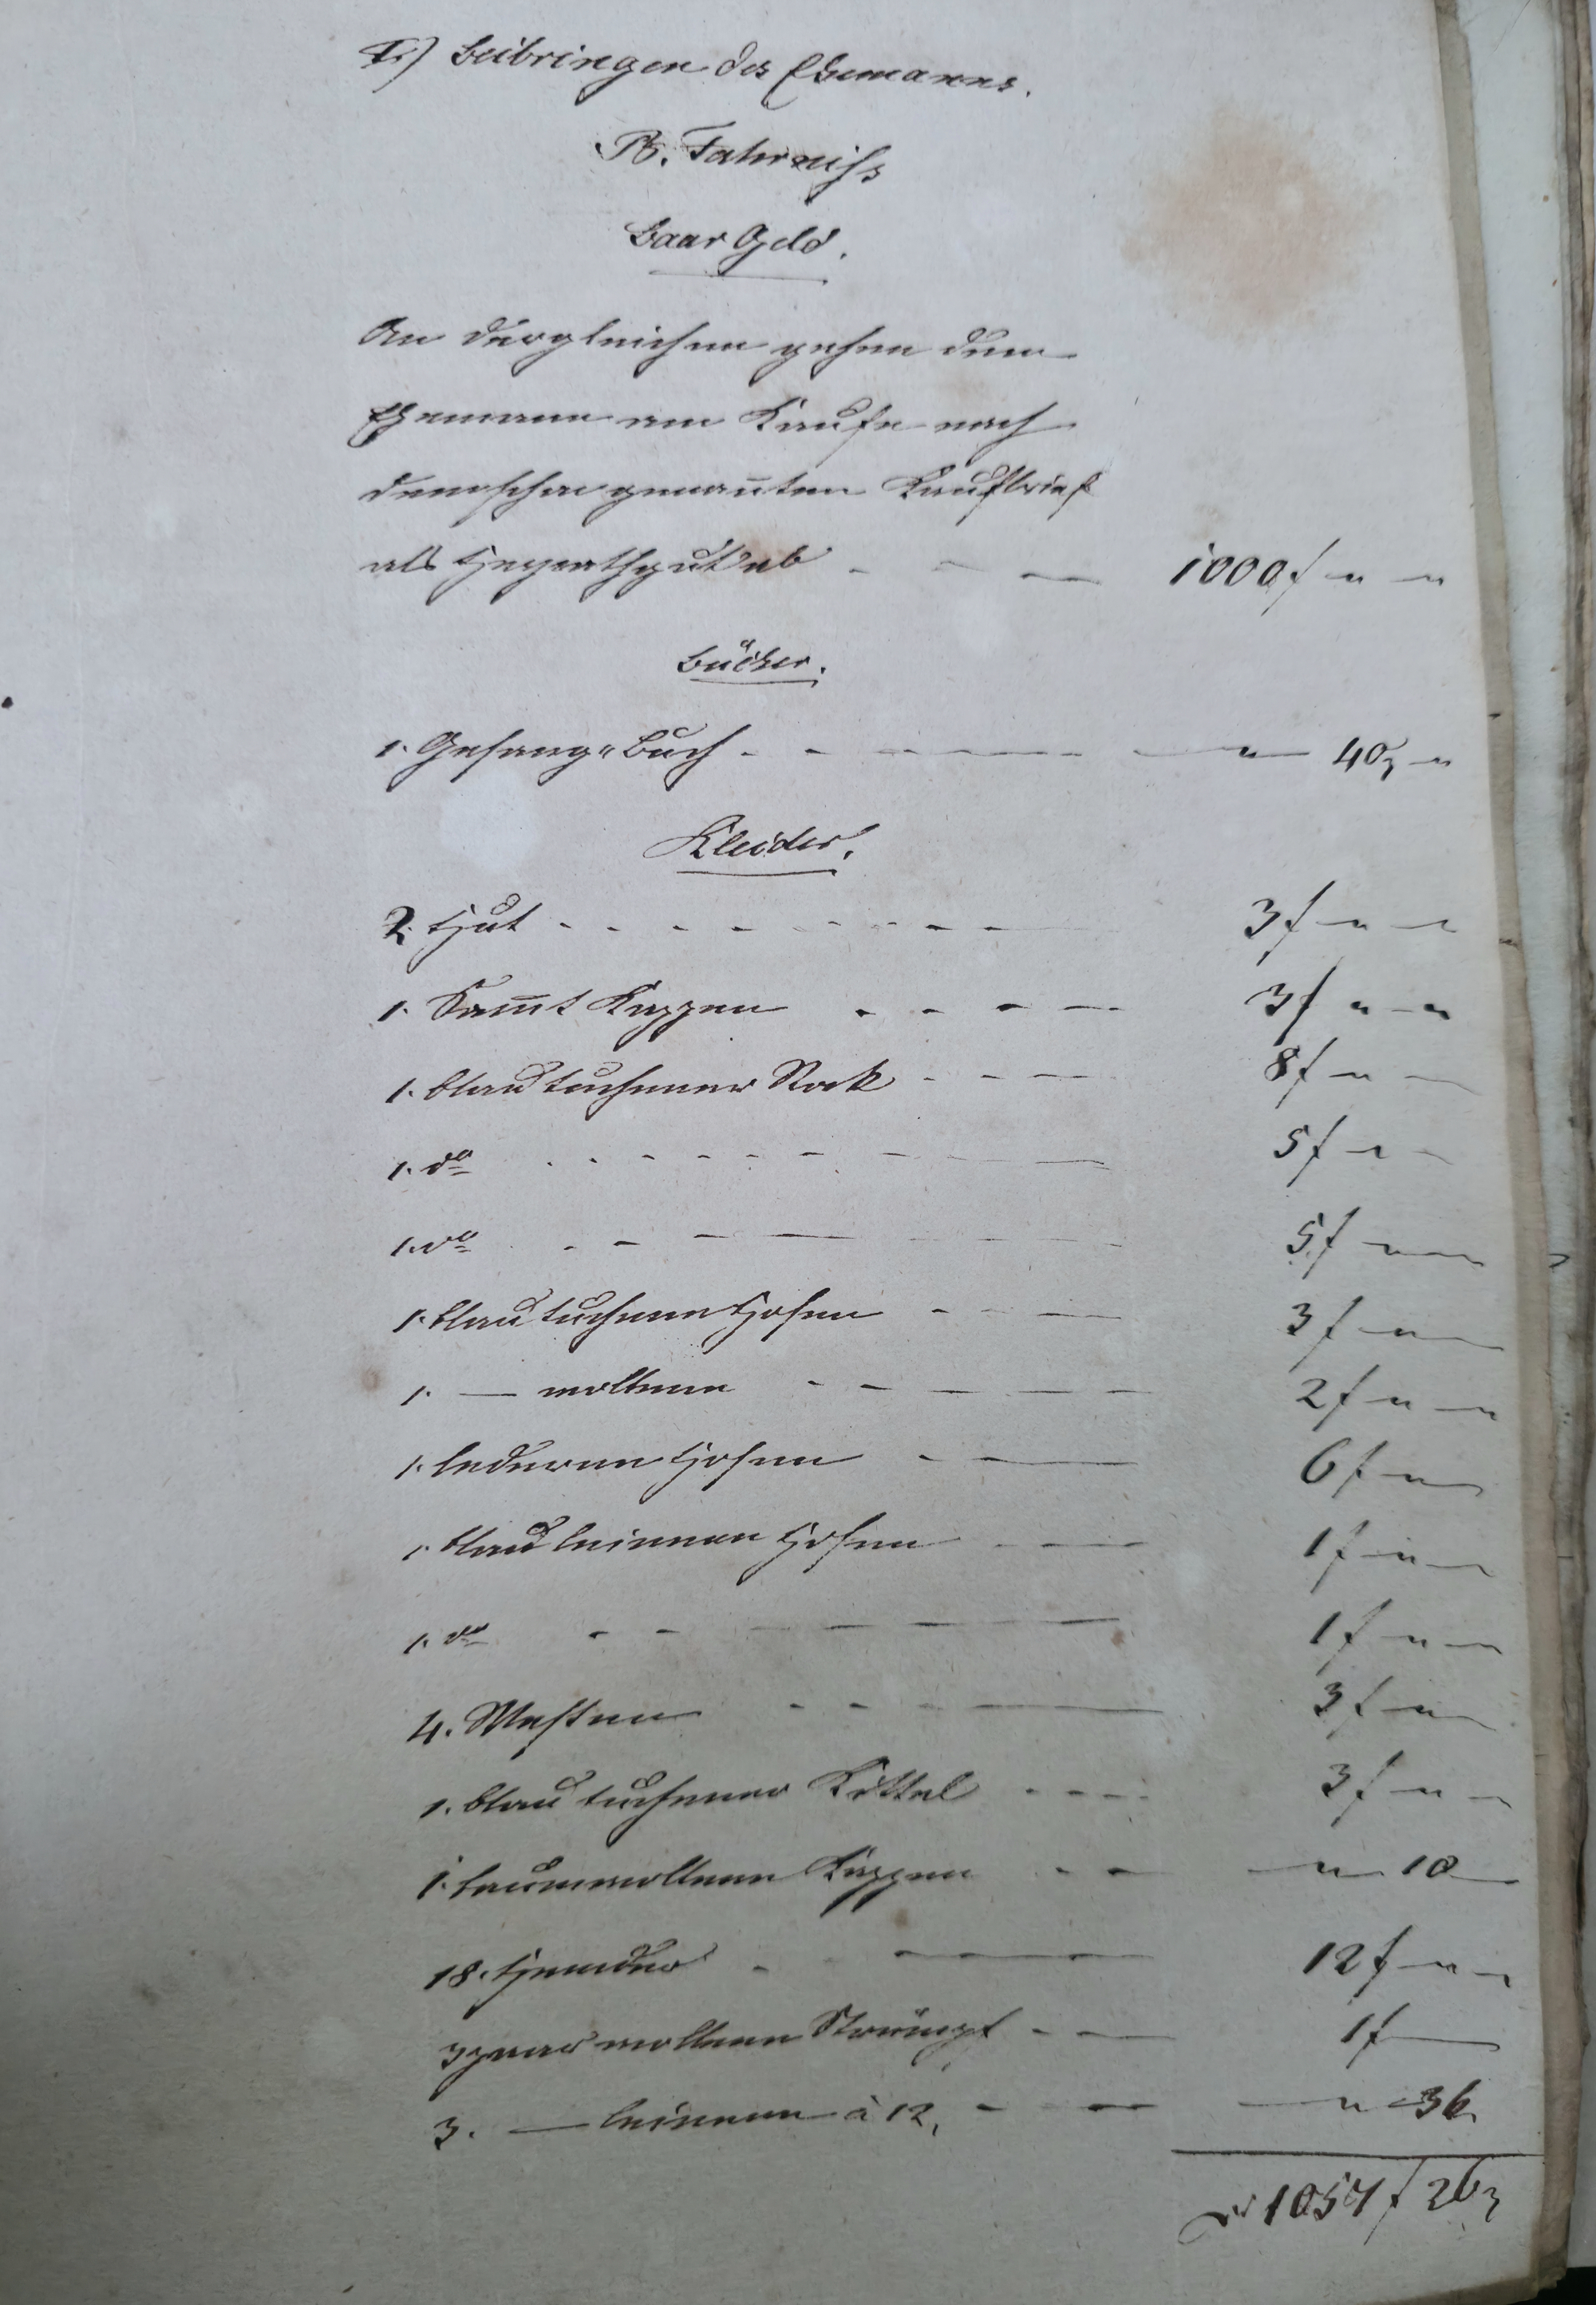 I.) Beibringen des Ehemanns.
B. Fahrniss
Baar Geld.
An dergleichen gehen dem
Ehemann am Kaufe nach
dem schon genan̄ten Kaufbrief
als Heyrathgut ab - - - 1000 f " "
Bücher.
1. Gesang"Buch - - - " 40 "
Kleider.
2. Hut - - - 3 f " "
1. Sam̄t Kappen - - - 3 f " "
1. blau tuchener Rock - - - 8 f "
1. do - - - 5 f "
1. do - - - 5 f "
1. blau tuchene Hosen - - - 3 f "
1. — wollene - - - 2 f " "
1. lederene Hosen - - - 6 f "
1. blau leinene Hosen - - - 1 f "
1. do - - - 1 f "
4. Westen - - - 3 f "
1. blau tuchener Kittel - - - 3 f "
1. baumwollene Kappen - - " 10
18. Hemder - - - 12 f "
3 paar wollene Strümpf - - 1 f
3. — leinene à 12, - - - " 36
1057 f 26